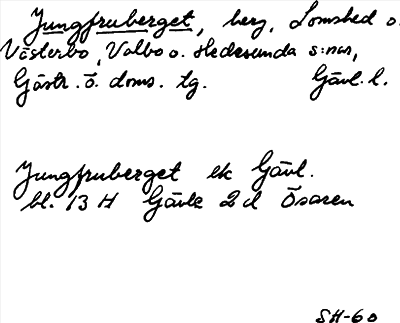 Jungfruberget, berg, Lomsbed o.
Västerbo, Valbo o. Hedesunda s:nar,
Gästr. ö. doms. tg. Gävl. l.
Jungfruberget ek Gävl.
bl. 13 H Gävle 2d Ösaren
SH-60